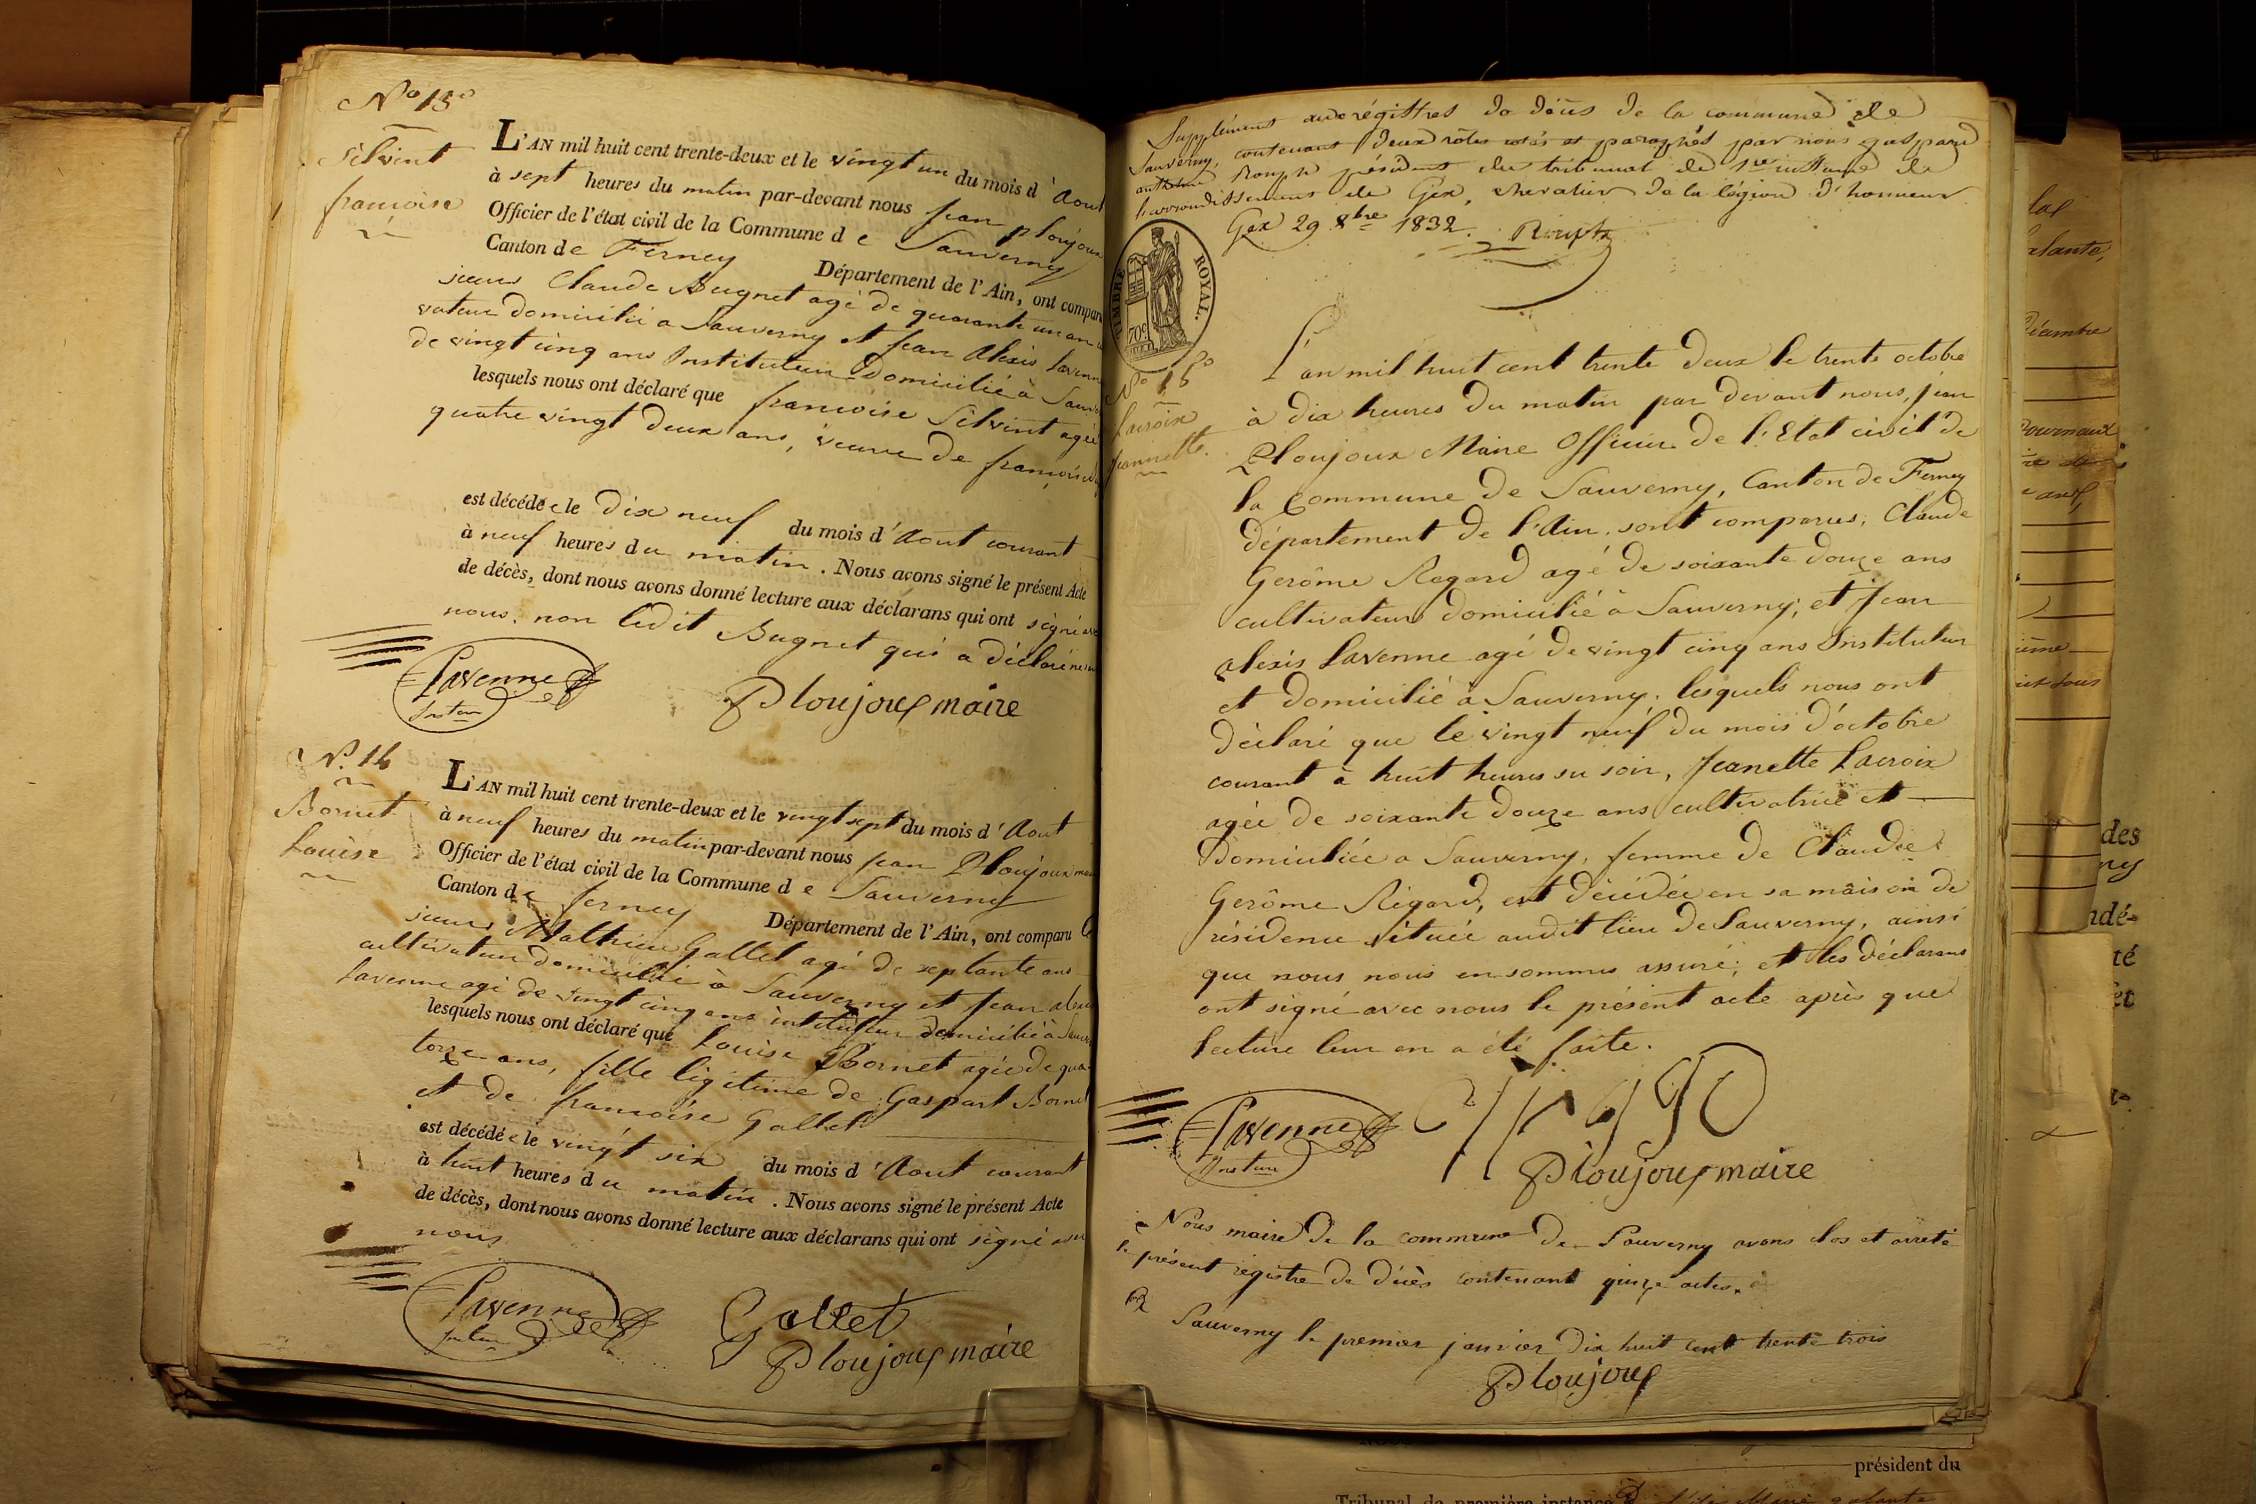 No 13o
Silvint
francoise
L'AN mil huit cent trente-deux et le vingt un du mois d'Aout
à sept heures du matin par-devant nous jean ploujoux
Officier de l'état civil de la Commune de Sauverny
Canton de Ferney Département de l'Ain, ont comparu
sieurs Claude Bugnet agé de quarante un an
vateur domicilié a Sauverny et jean Alexis Lavenne
de vingt cinq ans Instituteur domicilié à Sauv
lesquels nous ont déclaré que francoise Silvint agée
quatre vingt deux ans, veuve de francois
est décédée le dix neuf du mois d'Aout courant
à neuf heures du matin. Nous avons signé le présent Acte
de décès, dont nous avons donné lecture aux déclarans qui ont signé avec
nous, non ledit Bugnet qui a déclaré ne
Lavenne
Insteur
Ploujoux maire
No. 14
Bornet
Louise
L'AN mil huit cent trente-deux et le vingt sept du mois d'Aout
à neuf heures du matin par-devant nous jean Ploujoux mai
Officier de l'état civil de la Commune de Sauverny
Canton de ferney Département de l'Ain, ont comparu
sieurs Mathieu Gallet agé de septante ans
cultivateur domicilié à Sauverny et jean alexis
Lavenne agé de vingt cinq ans intituteur domicilié à Sauv
lesquels nous ont déclaré que Louise Bornet agée de qua
torze ans, fille légitime de Gaspart Bornet
et de francoise Gallet
est décédée le vingt six du mois d'Aout courant
à huit heures du matin. Nous avons signé le présent Acte
de décès, dont nous avons donné lecture aux déclarans qui ont signé avec
nous
Lavenne
Gallet
Ploujoux maire
Supplément aux régistres de décès de la commune de
Sauverny, contenant deux rôles cotés et paraphés par nous gaspard
anthelme Rouph président du tribunal de 1re instance de
l'arrondissement de Gex, chevalier de la légion d'honneur
Gex 29 8bre 1832. Rouph
TIMBRE ROYAL.
70c
No 15o
Lacroix
Jeannette.
L'an mil huit cent trente deux le trente octobre
à dix heures du matin par devant nous, jean
Ploujoux Maire Officier de l'Etat civil de
la Commune de Sauverny, Canton de Ferney
département de l'Ain, sont comparus, Claude
Gerôme Regard agé de soixante douze ans
cultivateur domicilié à Sauverny; et jean
alexis Lavenne agé de vingt cinq ans Instituteur
et domicilié à Sauverny. lesquels nous ont
déclaré que le vingt neuf du mois d'octobre
courant à huit heures su soir, Jeanette Lacroix
agée de soixante douze ans cultivatrice et
domiciliée a Sauverny, femme de Claude
Gerôme Régard, est décédée en sa maison de
résidence située audit lieu de Sauverny, ainsi
que nous nous en sommes assuré; et les déclarans
ont signé avec nous le présent acte après que
lecture leur en a été faite.
Lavenne
Insteur
Ploujoux maire
Nous maire de la commune de Sauverny avons clos et arreté
le présent régistre de décès contenant quinze actes.
Sauverny le premier janvier dix huit cent trente trois
Ploujoux
des
ndé-
président du
Tribunal de première instance